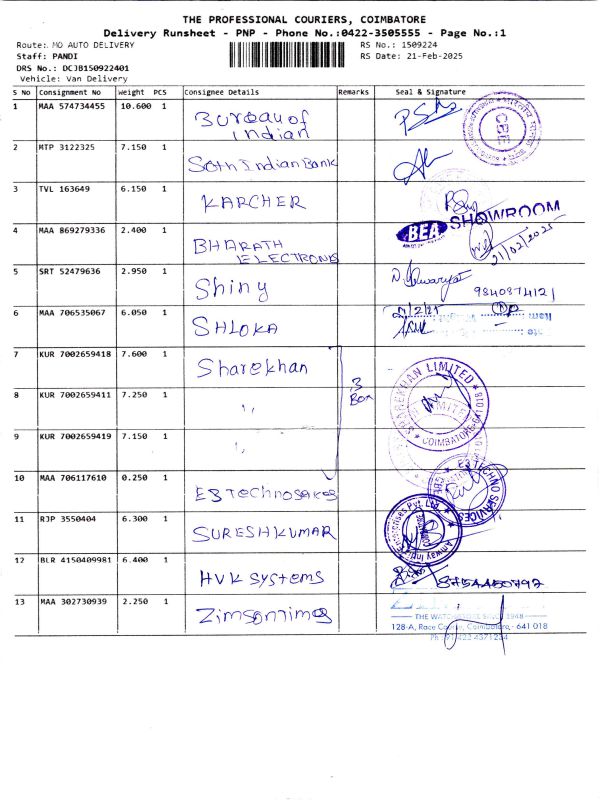 THE PROFESSIONAL COURIERS, COIMBATORE
Delivery Runsheet - PNP - Phone No.:0422-3505555 - Page No.:1
Route: MO AUTO DELIVERY
RS No.: 1509224
Staff: PANDI
RS Date: 21-Feb-2025
DRS No.: DCJB150922401
Vehicle: Van Delivery
S No Consignment No Weight PCS Consignee Details Remarks Seal & Signature
1 MAA 574734455 10.600 1 Bureau of
Indian
CBE
2 MTP 3122325 7.150 1 Soth Indian Bank
3 TVL 163649 6.150 1 KARCHER
4 MAA 869279336 2.400 1 BHARATH
ELECTRONIS
BEA SHOWROOM
21/02/2025
5 SRT 52479636 2.950 1 Shiny
6 MAA 706535067 6.050 1 SHLOKA
7 KUR 7002659418 7.600 1 Sharekhan
3
Box
SHAREKHAN LIMITED
COIMBATORE
8 KUR 7002659411 7.250 1 ,,
9 KUR 7002659419 7.150 1 ,,
10 MAA 706117610 0.250 1
E3 TECHNO SERVICES
11 RJP 3550404 6.300 1 SURESHKUMAR
Amway India Enterprises Pvt. Ltd.
12 BLR 4150409981 6.400 1 HVK Systems
13 MAA 302730939 2.250 1
SINCE 1948
128-A, Race Course, Coimbatore - 641 018
Ph : 91 422 4371234